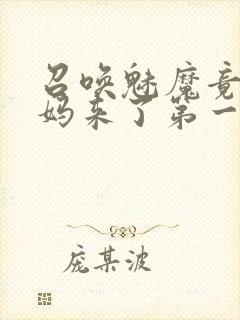 召唤魅魔竟
妈来了第一
庞某波